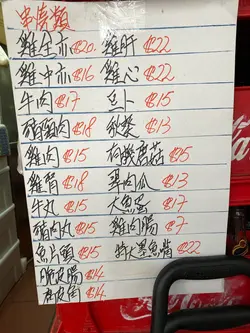 串燒類
雞全亦 $20. 雞肝 $22
雞中亦 $16 雞心 $22
牛肉 $17 豆卜 $15
豬頸肉 $18 秋葵 $13
雞肉 $15 有機磨菇 $15
雞腎 $18 翠肉瓜 $13
牛丸 $15 大魚蛋 $7
豬肉丸 $15 雞肉腸 $7
魚片頭 $15 特大墨魚鬚 $22
脆皮腸 $14
$14